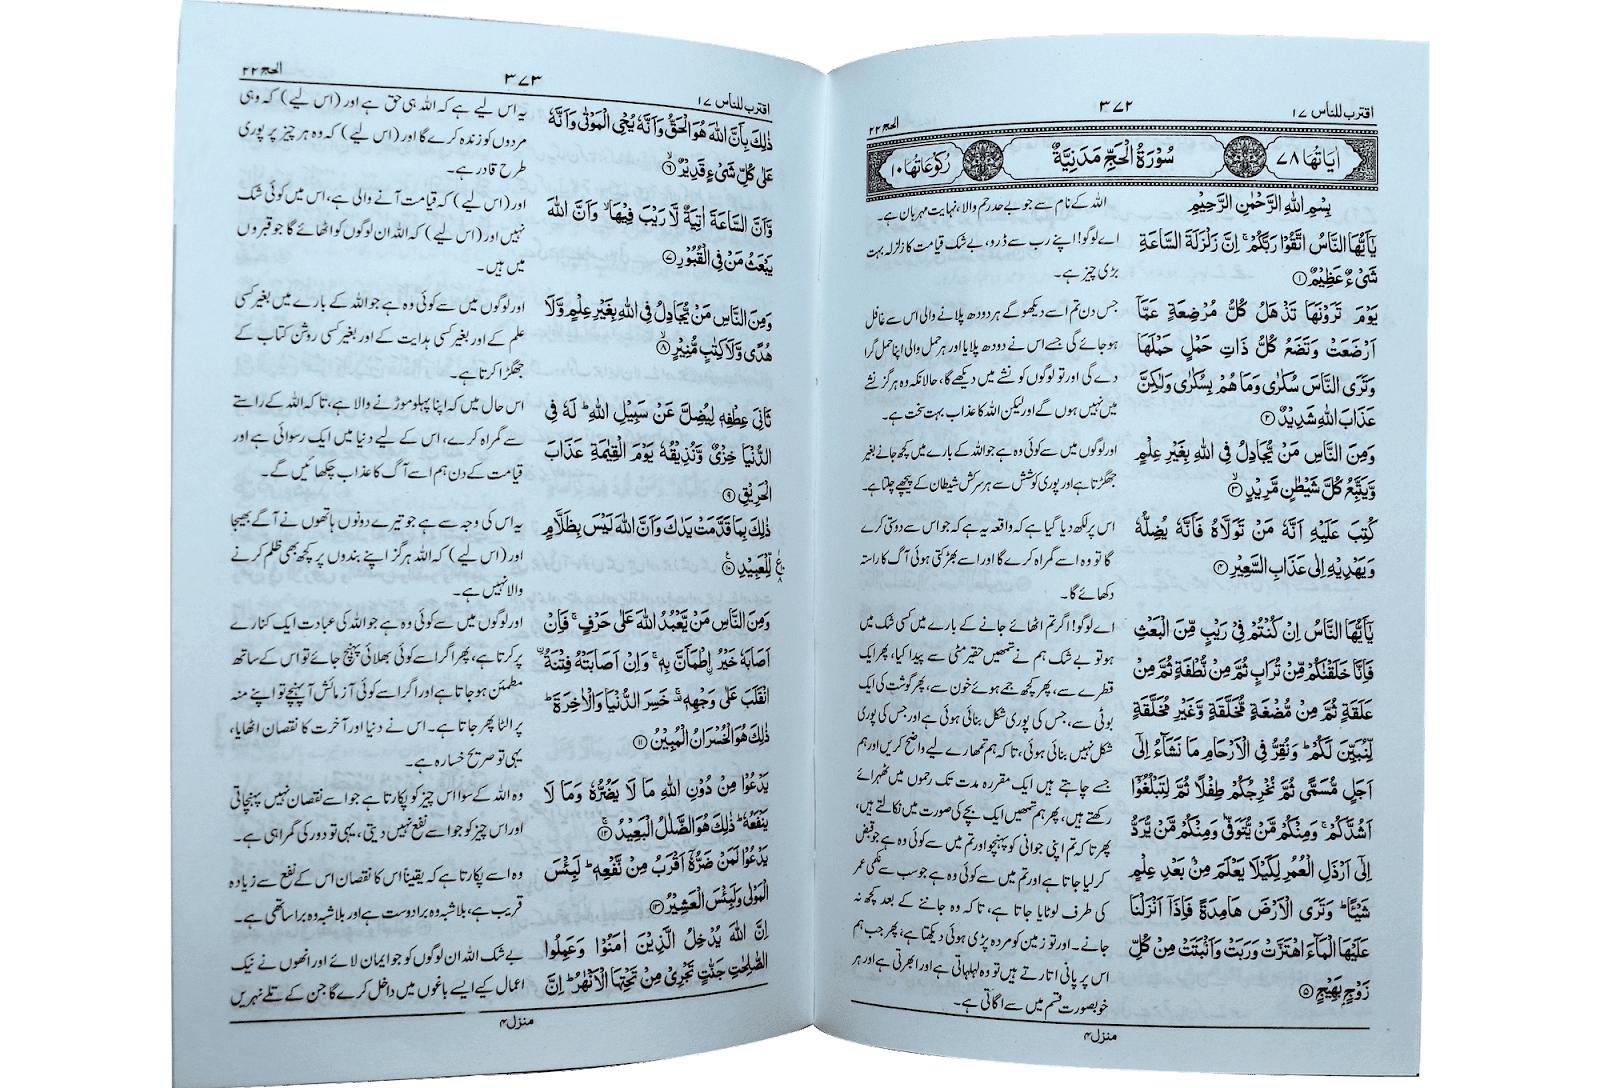 اقترب للناس ۱۷
۳۷۲
الحج ۲۲
اٰيَاتُهَا ۷۸
سُوْرَةُ الْحَجِّ مَدَنِيَّةٌ
رُكُوْعَاتُهَا ۱۰
بِسْمِ اللّٰهِ الرَّحْمٰنِ الرَّحِيْمِ
يٰۤاَيُّهَا النَّاسُ اتَّقُوْا رَبَّكُمْ ۚ اِنَّ زَلْزَلَةَ السَّاعَةِ
شَيْءٌ عَظِيْمٌ ۱
يَوْمَ تَرَوْنَهَا تَذْهَلُ كُلُّ مُرْضِعَةٍ عَمَّاۤ
اَرْضَعَتْ وَتَضَعُ كُلُّ ذَاتِ حَمْلٍ حَمْلَهَا
وَتَرَى النَّاسَ سُكٰرٰى وَمَا هُمْ بِسُكٰرٰى وَلٰكِنَّ
عَذَابَ اللّٰهِ شَدِيْدٌ ۲
وَمِنَ النَّاسِ مَنْ يُّجَادِلُ فِي اللّٰهِ بِغَيْرِ عِلْمٍ
وَّيَتَّبِعُ كُلَّ شَيْطٰنٍ مَّرِيْدٍ ۙ ۳
كُتِبَ عَلَيْهِ اَنَّهٗ مَنْ تَوَلَّاهُ فَاَنَّهٗ يُضِلُّهٗ
وَيَهْدِيْهِ اِلٰى عَذَابِ السَّعِيْرِ ۴
يٰۤاَيُّهَا النَّاسُ اِنْ كُنْتُمْ فِيْ رَيْبٍ مِّنَ الْبَعْثِ
فَاِنَّا خَلَقْنٰكُمْ مِّنْ تُرَابٍ ثُمَّ مِنْ نُّطْفَةٍ ثُمَّ مِنْ
عَلَقَةٍ ثُمَّ مِنْ مُّضْغَةٍ مُّخَلَّقَةٍ وَّغَيْرِ مُخَلَّقَةٍ
لِّنُبَيِّنَ لَكُمْ ؕ وَنُقِرُّ فِي الْاَرْحَامِ مَا نَشَآءُ اِلٰۤى
اَجَلٍ مُّسَمًّى ثُمَّ نُخْرِجُكُمْ طِفْلًا ثُمَّ لِتَبْلُغُوْۤا
اَشُدَّكُمْ ۚ وَمِنْكُمْ مَّنْ يُّتَوَفّٰى وَمِنْكُمْ مَّنْ يُّرَدُّ
اِلٰۤى اَرْذَلِ الْعُمُرِ لِكَيْلَا يَعْلَمَ مِنْۢ بَعْدِ عِلْمٍ
شَيْـًٔا ؕ وَتَرَى الْاَرْضَ هَامِدَةً فَاِذَاۤ اَنْزَلْنَا
عَلَيْهَا الْمَآءَ اهْتَزَّتْ وَرَبَتْ وَاَنْۢبَتَتْ مِنْ كُلِّ
زَوْجٍۭ بَهِيْجٍ ۵
اللہ کے نام سے جو بے حد رحم والا، نہایت مہربان ہے۔
اے لوگو! اپنے رب سے ڈرو، بے شک قیامت کا زلزلہ بہت
بڑی چیز ہے۔
جس دن تم اسے دیکھو گے ہر دودھ پلانے والی اس سے غافل
ہو جائے گی جسے اس نے دودھ پلایا اور ہر حمل والی اپنا حمل گرا
دے گی اور تو لوگوں کو نشے میں دیکھے گا، حالانکہ وہ ہرگز نشے
میں نہیں ہوں گے اور لیکن اللہ کا عذاب بہت سخت ہے۔
اور لوگوں میں سے کوئی وہ ہے جو اللہ کے بارے میں کچھ جانے بغیر
جھگڑتا ہے اور پوری کوشش سے ہر سرکش شیطان کے پیچھے چلتا ہے۔
اس پر لکھ دیا گیا ہے کہ واقعہ یہ ہے کہ جو اس سے دوستی کرے
گا تو وہ اسے گمراہ کرے گا اور اسے بھڑکتی ہوئی آگ کا راستہ
دکھائے گا۔
اے لوگو! اگر تم اٹھائے جانے کے بارے میں کسی شک میں
ہو تو بے شک ہم نے تمھیں حقیر مٹی سے پیدا کیا، پھر ایک
قطرے سے، پھر کچھ جمے ہوئے خون سے، پھر گوشت کی ایک
بوٹی سے، جس کی پوری شکل بنائی ہوئی ہے اور جس کی پوری
شکل نہیں بنائی ہوئی، تاکہ ہم تمھارے لیے واضح کریں اور ہم
جسے چاہتے ہیں ایک مقررہ مدت تک رحموں میں ٹھہرائے
رکھتے ہیں، پھر ہم تمھیں ایک بچے کی صورت میں نکالتے ہیں،
پھر تاکہ تم اپنی جوانی کو پہنچو اور تم میں سے کوئی وہ ہے جو قبض
کر لیا جاتا ہے اور تم میں سے کوئی وہ ہے جو سب سے نکمی عمر
کی طرف لوٹایا جاتا ہے، تاکہ وہ جاننے کے بعد کچھ نہ
جانے۔ اور تو زمین کو مردہ پڑی ہوئی دیکھتا ہے، پھر جب ہم
اس پر پانی اتارتے ہیں تو وہ لہلہاتی ہے اور ابھرتی ہے اور ہر
خوبصورت قسم میں سے اگاتی ہے۔
منزل ۴
اقترب للناس ۱۷
۳۷۳
الحج ۲۲
ذٰلِكَ بِاَنَّ اللّٰهَ هُوَ الْحَقُّ وَاَنَّهٗ يُحْيِ الْمَوْتٰى وَاَنَّهٗ
عَلٰى كُلِّ شَيْءٍ قَدِيْرٌ ۙ ۶
وَّاَنَّ السَّاعَةَ اٰتِيَةٌ لَّا رَيْبَ فِيْهَا ۙ وَاَنَّ اللّٰهَ
يَبْعَثُ مَنْ فِي الْقُبُوْرِ ۷
وَمِنَ النَّاسِ مَنْ يُّجَادِلُ فِي اللّٰهِ بِغَيْرِ عِلْمٍ وَّلَا
هُدًى وَّلَا كِتٰبٍ مُّنِيْرٍ ۙ ۸
ثَانِيَ عِطْفِهٖ لِيُضِلَّ عَنْ سَبِيْلِ اللّٰهِ ؕ لَهٗ فِي
الدُّنْيَا خِزْيٌ وَّنُذِيْقُهٗ يَوْمَ الْقِيٰمَةِ عَذَابَ
الْحَرِيْقِ ۹
ذٰلِكَ بِمَا قَدَّمَتْ يَدٰكَ وَاَنَّ اللّٰهَ لَيْسَ بِظَلَّامٍ
لِّلْعَبِيْدِ ۱۰
وَمِنَ النَّاسِ مَنْ يَّعْبُدُ اللّٰهَ عَلٰى حَرْفٍ ۚ فَاِنْ
اَصَابَهٗ خَيْرُ ۨاطْمَاَنَّ بِهٖ ۚ وَاِنْ اَصَابَتْهُ فِتْنَةُ ۨ
انْقَلَبَ عَلٰى وَجْهِهٖ ۚ خَسِرَ الدُّنْيَا وَالْاٰخِرَةَ ؕ
ذٰلِكَ هُوَ الْخُسْرَانُ الْمُبِيْنُ ۱۱
يَدْعُوْا مِنْ دُوْنِ اللّٰهِ مَا لَا يَضُرُّهٗ وَمَا لَا
يَنْفَعُهٗ ؕ ذٰلِكَ هُوَ الضَّلٰلُ الْبَعِيْدُ ۚ ۱۲
يَدْعُوْا لَمَنْ ضَرُّهٗۤ اَقْرَبُ مِنْ نَّفْعِهٖ ؕ لَبِئْسَ
الْمَوْلٰى وَلَبِئْسَ الْعَشِيْرُ ۱۳
اِنَّ اللّٰهَ يُدْخِلُ الَّذِيْنَ اٰمَنُوْا وَعَمِلُوا
الصّٰلِحٰتِ جَنّٰتٍ تَجْرِيْ مِنْ تَحْتِهَا الْاَنْهٰرُ ؕ اِنَّ
یہ اس لیے ہے کہ اللہ ہی حق ہے اور (اس لیے) کہ وہی
مردوں کو زندہ کرے گا اور (اس لیے) کہ وہ ہر چیز پر پوری
طرح قادر ہے۔
اور (اس لیے) کہ قیامت آنے والی ہے، اس میں کوئی شک
نہیں اور (اس لیے) کہ اللہ ان لوگوں کو اٹھائے گا جو قبروں
میں ہیں۔
اور لوگوں میں سے کوئی وہ ہے جو اللہ کے بارے میں بغیر کسی
علم کے اور بغیر کسی ہدایت کے اور بغیر کسی روشن کتاب کے
جھگڑا کرتا ہے۔
اس حال میں کہ اپنا پہلو موڑنے والا ہے، تاکہ اللہ کے راستے
سے گمراہ کرے، اس کے لیے دنیا میں ایک رسوائی ہے اور
قیامت کے دن ہم اسے آگ کا عذاب چکھائیں گے۔
یہ اس کی وجہ سے ہے جو تیرے دونوں ہاتھوں نے آگے بھیجا
اور (اس لیے) کہ اللہ ہرگز اپنے بندوں پر کچھ بھی ظلم کرنے
والا نہیں ہے۔
اور لوگوں میں سے کوئی وہ ہے جو اللہ کی عبادت ایک کنارے
پر کرتا ہے، پھر اگر اسے کوئی بھلائی پہنچ جائے تو اس کے ساتھ
مطمئن ہو جاتا ہے اور اگر اسے کوئی آزمائش آ پہنچے تو اپنے منہ
پر الٹا پھر جاتا ہے۔ اس نے دنیا اور آخرت کا نقصان اٹھایا،
یہی تو صریح خسارہ ہے۔
وہ اللہ کے سوا اس چیز کو پکارتا ہے جو اسے نقصان نہیں پہنچاتی
اور اس چیز کو جو اسے نفع نہیں دیتی، یہی تو دور کی گمراہی ہے۔
وہ اسے پکارتا ہے کہ یقیناً اس کا نقصان اس کے نفع سے زیادہ
قریب ہے، بلاشبہ وہ برا دوست ہے اور بلاشبہ وہ برا ساتھی ہے۔
بے شک اللہ ان لوگوں کو جو ایمان لائے اور انھوں نے نیک
اعمال کیے ایسے باغوں میں داخل کرے گا جن کے تلے نہریں
منزل ۴